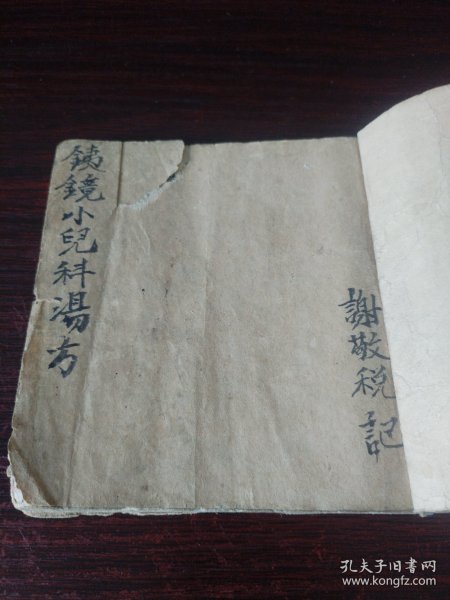 謝敬税記
鐵鏡小兒科湯方
孔夫子旧书网
www.kongfz.com